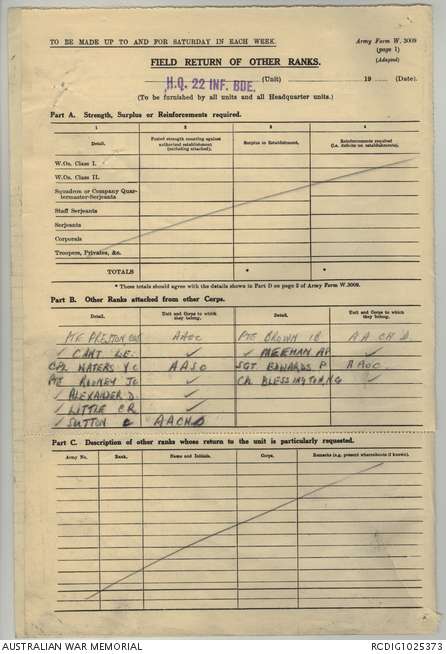 TO BE MADE UP TO AND FOR SATURDAY IN EACH WEEK.
Army Form W. 3009
(page 1)
(Adapted)
FIELD RETURN OF OTHER RANKS.
H.Q. 22 INF. BDE. (Unit) 19 (Date).
(To be furnished by all units and all Headquarter units.)
Part A. Strength, Surplus or Reinforcements required.
1 2 3 4
Detail. Posted strength counting against authorized establishment (excluding attached). Surplus to Establishment. Reinforcements required (i.e. deficits on establishments).
W.Os. Class I.
W.Os. Class II.
Squadron or Company Quar-
termaster-Serjeants
Staff Serjeants
Serjeants
Corporals
Troopers, Privates, &c.
TOTALS * *
* These totals should agree with the details shown in Part D on page 2 of Army Form W.3009.
Part B. Other Ranks attached from other Corps.
Detail. Unit and Corps to which they belong. Detail. Unit and Corps to which they belong.
PTE PRESTON AAOC PTE BROWN A A CH D
✓ CANT L.E. ✓ ✓ MEEHAN AP ✓
CPL WATERS V C A A S C SGT EDWARDS P A A O C
PTE ROONEY JC ✓ CPL BLESSINGTON H G ✓
✓ ALEXANDER D. ✓
✓ LITTLE C R ✓
✓ SUTTON C AACHD
Part C. Description of other ranks whose return to the unit is particularly requested.
Army No. Rank. Name and Initials. Corps. Remarks (e.g. present whereabouts if known).
AUSTRALIAN WAR MEMORIAL RCDIG1025373